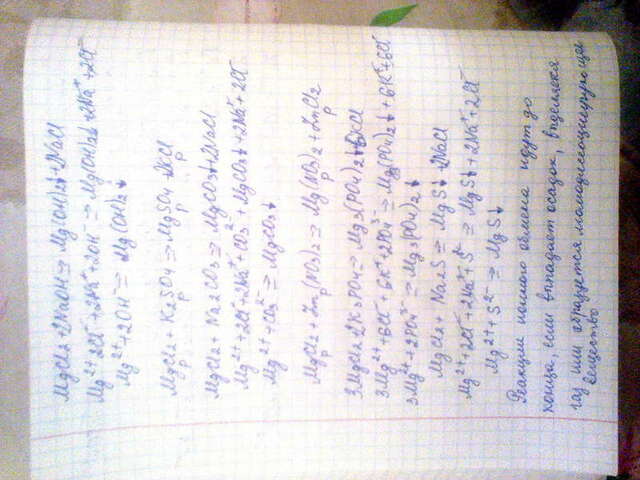 MgCl2+2NaOH => Mg(OH)2↓+2NaCl
Mg2++2Cl-+2Na++2OH- => Mg(OH)2↓+2Na++2Cl-
Mg2++2OH- => Mg(OH)2↓
MgCl2+K2SO4 => MgSO4+2KCl
р р р р
MgCl2+Na2CO3 => MgCO3↓+2NaCl
Mg2++2Cl-+2Na++CO3 2- => MgCO3↓+2Na++2Cl-
Mg2++CO3 2- => MgCO3↓
MgCl2+Zn(NO3)2 => Mg(NO3)2+ZnCl2
р р р р
3MgCl2+2K3PO4 => Mg3(PO4)2↓+6KCl
3Mg2++6Cl-+6K++2PO4 3- => Mg3(PO4)2↓+6K++6Cl-
3Mg2++2PO4 3- => Mg3(PO4)2↓
MgCl2+Na2S => MgS↓+2NaCl
Mg2++2Cl-+2Na++S2- => MgS↓+2Na++2Cl-
Mg2++S2- => MgS↓
Реакции ионного обмена идут до
конца, если выпадает осадок, выделяется
газ или образуется малодиссоциирующее
вещество